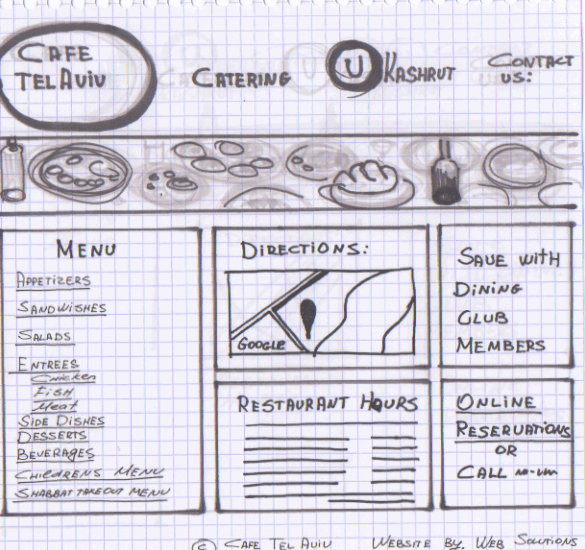 CAFE
TEL AVIV
CATERING
U
KASHRUT
CONTACT
US:
MENU
APPETIZERS
SANDWISHES
SALADS
ENTREES
Chicken
FISH
Meat
SIDE DISHES
DESSERTS
BEVERAGES
CHILDRENS MENU
SHABBAT TAKEOUT MENU
DIRECTIONS:
GOOGLE
RESTAURANT HOURS
SAVE WITH
DINING
CLUB
MEMBERS
ONLINE
RESERVATIONS
OR
CALL
© CAFE TEL AVIV WEBSITE BY WEB SOLUTIONS